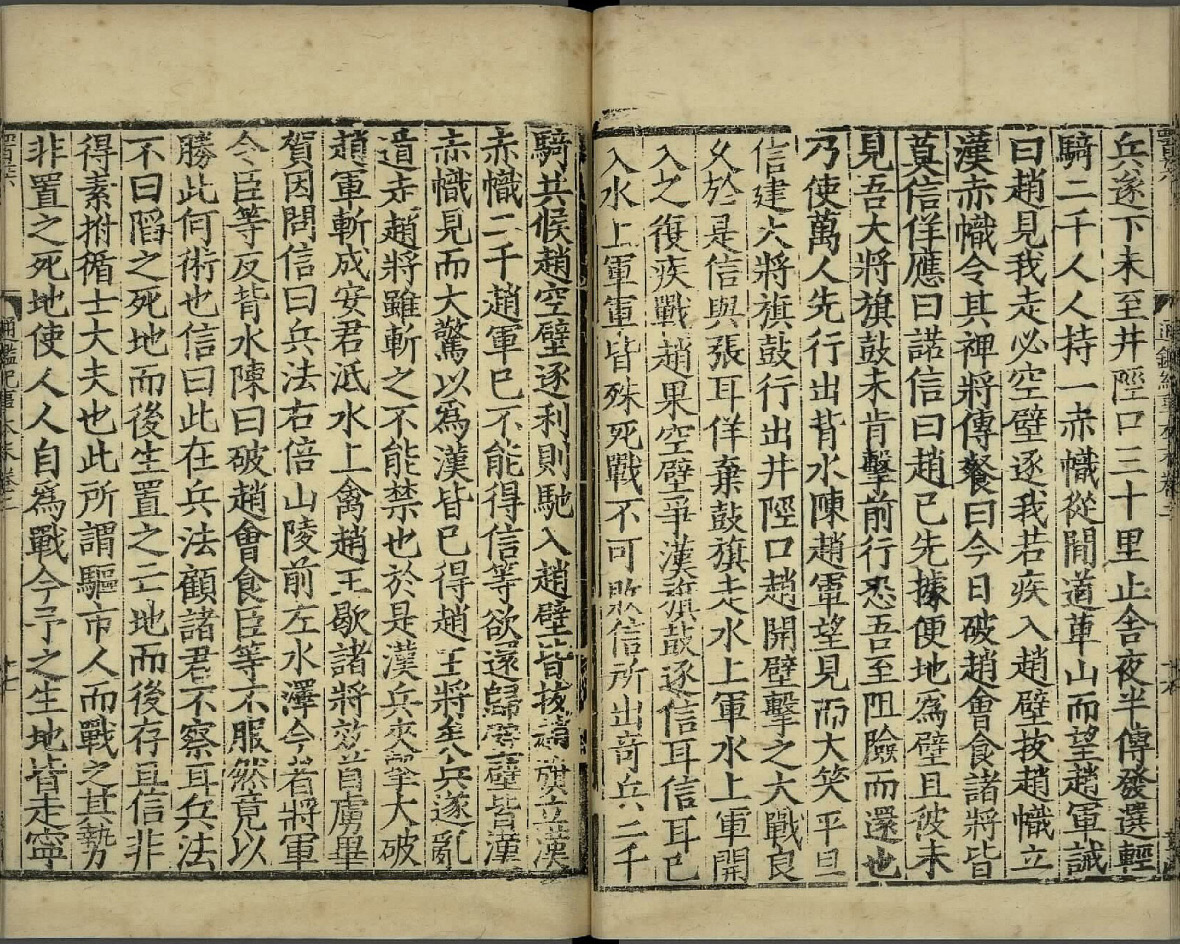 兵遂下未至井陘口三十里止舍夜半傳發選輕
騎二千人人持一赤幟從間道萆山而望趙軍誡
曰趙見我走必空壁逐我若疾入趙壁拔趙幟立
漢赤幟令其裨將傳餐曰今日破趙會食諸將皆
莫信佯應曰諾信曰趙已先據便地爲壁且彼未
見吾大將旗鼓未肯擊前行恐吾至阻險而還也
乃使萬人先行出背水陳趙軍望見而大笑平旦
信建大將旗鼓行出井陘口趙開壁擊之大戰良
乆於是信與張耳佯棄鼓旗走水上軍水上軍開
入之復疾戰趙果空壁爭漢旗鼓逐信耳信耳已
入水上軍軍皆殊死戰不可敗信所出竒兵二千
騎共候趙空壁逐利則馳入趙壁皆拔趙旗立漢
赤幟二千趙軍已不能得信等欲還歸壁壁皆漢
赤幟見而大驚以爲漢皆已得趙王將矣兵遂亂
遁走趙將雖斬之不能禁也於是漢兵夾擊大破
趙軍斬成安君泜水上禽趙王歇諸將效首虜畢
賀因問信曰兵法右倍山陵前左水澤今者將軍
令臣等反背水陳曰破趙會食臣等不服然竟以
勝此何術也信曰此在兵法顧諸君不察耳兵法
不曰陷之死地而後生置之亡地而後存且信非
得素拊循士大夫也此所謂驅市人而戰之其勢
非置之死地使人人自爲戰今予之生地皆走寧
通鑑紀事本末卷二